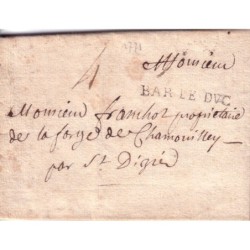 1771
4 Monsieur
BAR LE DUC
Monsieur franchot propriétaire
de la forge de Chamouilley
par St Dizier